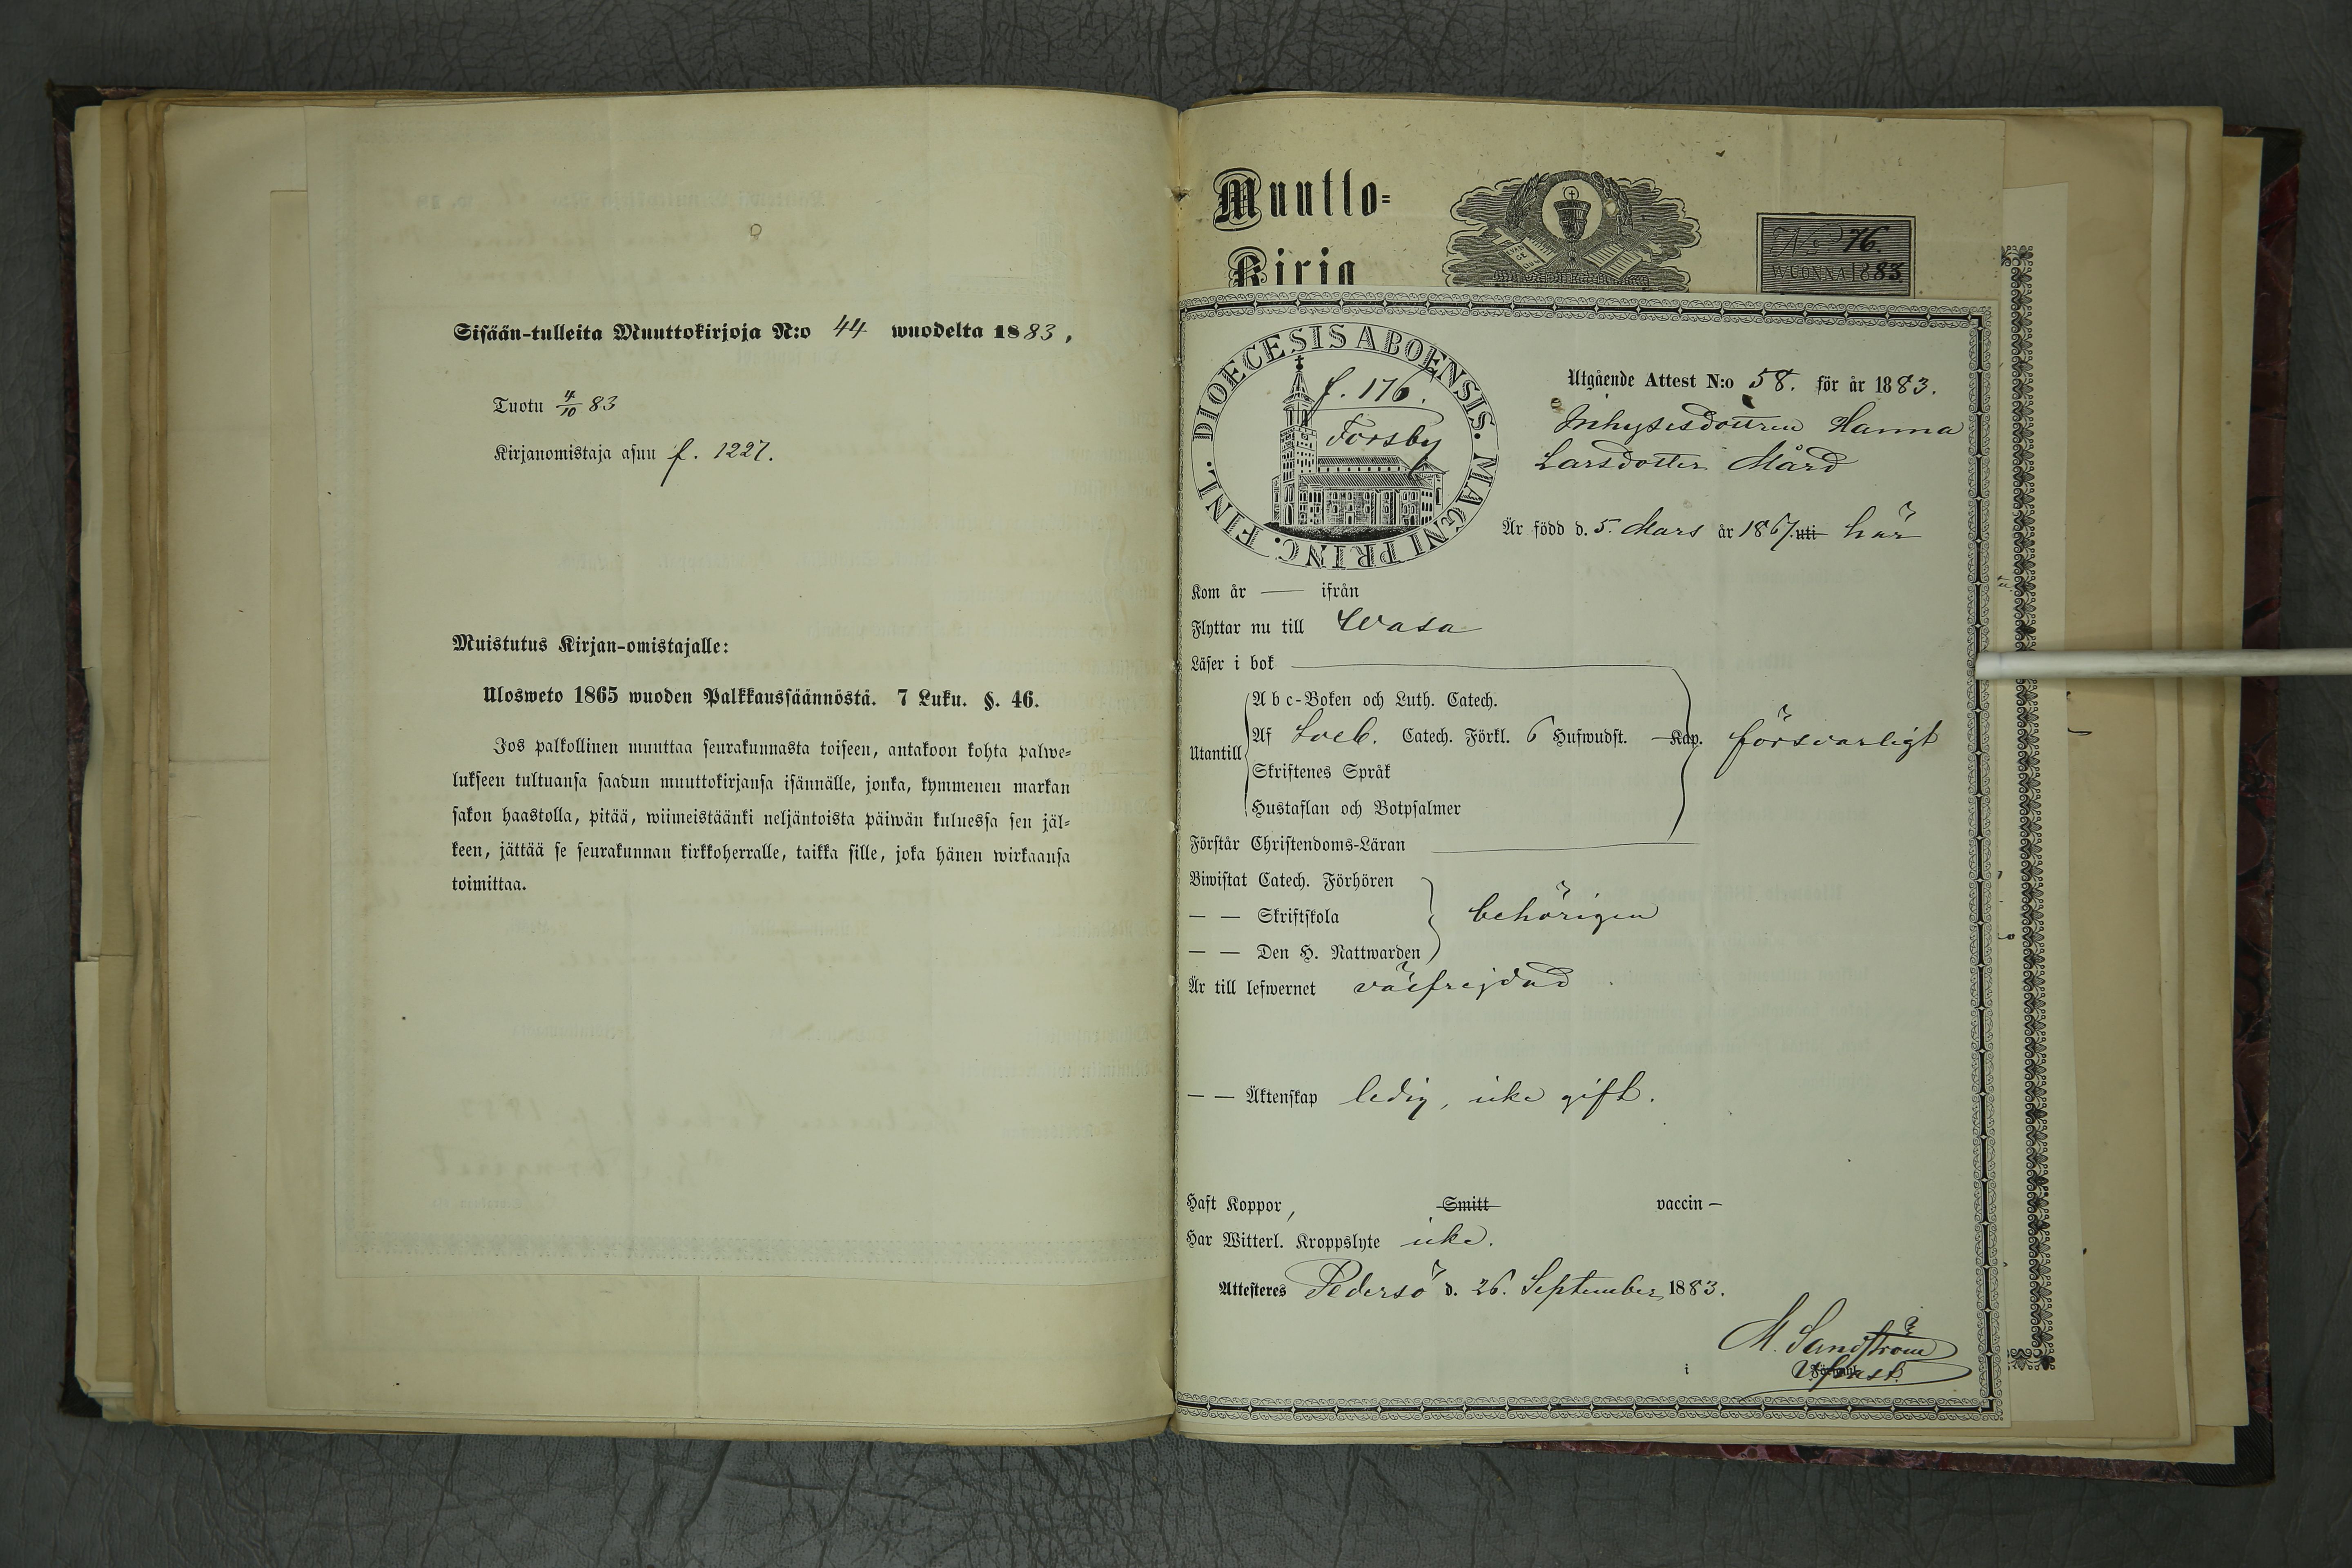 Sisään-tulleita Muuttokirjoja N:o 44 wuodelta 1883,
Tuotu 4/10 83
Kirjanomistaja asuu f. 1227.
Muistutus Kirjan-omistajalle:
Ulosweto 1865 wuoden Palkkaussäännöstä. 7 Luku. §. 46.
Jos palkollinen muuttaa seurakunnasta toiseen, antakoon kohta palwe-
lukseen tultuansa saadun muuttokirjansa isännälle, jonka, kymmenen markan
sakon haastolla, pitää, wiimeistäänki neljäntoista päiwän kuluessa sen jäl-
keen, jättää se seurakunnan kirkkoherralle, taikka sille, joka hänen wirkaansa
toimittaa.
Muutto-
Kirja
N:o 76.
WUONNA 1883.
DIOECESIS ABOENSIS. MAGNI PRINC. FINL.
f. 176.
Forsby
Utgående Attest N:o 58. för år 1883.
Inhysesdottren Hanna
Larsdotter Mård
Är född d. 5. Mars år 1867. uti här
Kom år — ifrån
Flyttar nu till Wasa
Läser i bok
Utantill
Abc-Boken och Luth. Catech.
Af Sveb. Catech. Förkl. 6 Hufwudst. — Kap. försvarligt
Skriftenes Språk
Hustaflan och Botpsalmer
Förstår Christendoms-Läran
Biwistat Catech. Förhören
— — Skriftskola behörigen
— — Den H. Nattwarden
Är till lefwernet välfrejdad
— — Äktenskap ledig, icke gift.
Haft Koppor, Smitt vaccin —
Har Witterl. Kroppslyte icke.
Attesteres Pedersö d. 26. September 1883.
M. Sandström
i